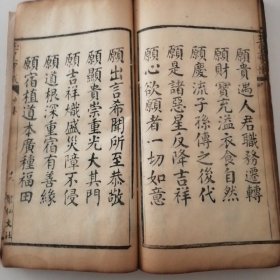 願貴過人君職務遊官
願財寶充溢衣食自然
願慶流子孫傳之後代
願是諸惡星反降吉祥
願心欲願者一切如意
願出言希聞所至恭敬
願顯貴崇重光大其門
願吉祥熾盛災障不侵
願道根深宿有善緣
願宿植道本廣種福田